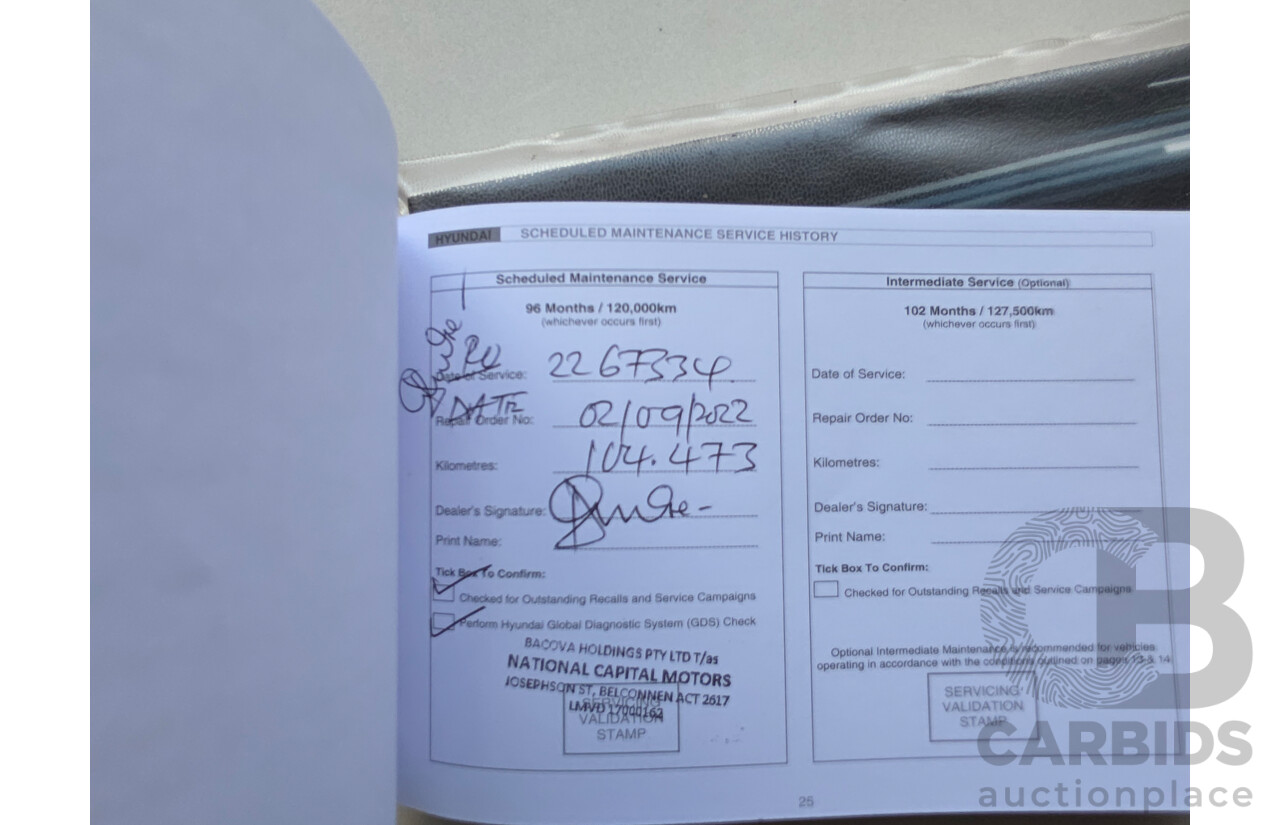 HYUNDAI SCHEDULED MAINTENANCE SERVICE HISTORY
Scheduled Maintenance Service
96 Months / 120,000km
(whichever occurs first)
RO
Date of Service: 22 67334
DATE
Repair Order No: 02/09/2022
Kilometres: 104.473
Dealer's Signature:
Print Name:
Tick Box To Confirm:
Checked for Outstanding Recalls and Service Campaigns
Perform Hyundai Global Diagnostic System (GDS) Check
BACOVA HOLDINGS PTY LTD T/as
NATIONAL CAPITAL MOTORS
JOSEPHSON ST, BELCONNEN ACT 2617
LMVD 17000162
SERVICING
VALIDATION
STAMP
Intermediate Service (Optional)
102 Months / 127,500km
(whichever occurs first)
Date of Service:
Repair Order No:
Kilometres:
Dealer's Signature:
Print Name:
Tick Box To Confirm:
Checked for Outstanding Recalls and Service Campaigns
Optional Intermediate Maintenance is recommended for vehicles
operating in accordance with the conditions outlined on pages 13 & 14
SERVICING
VALIDATION
STAMP
25
CB
CARBIDS
auctionplace